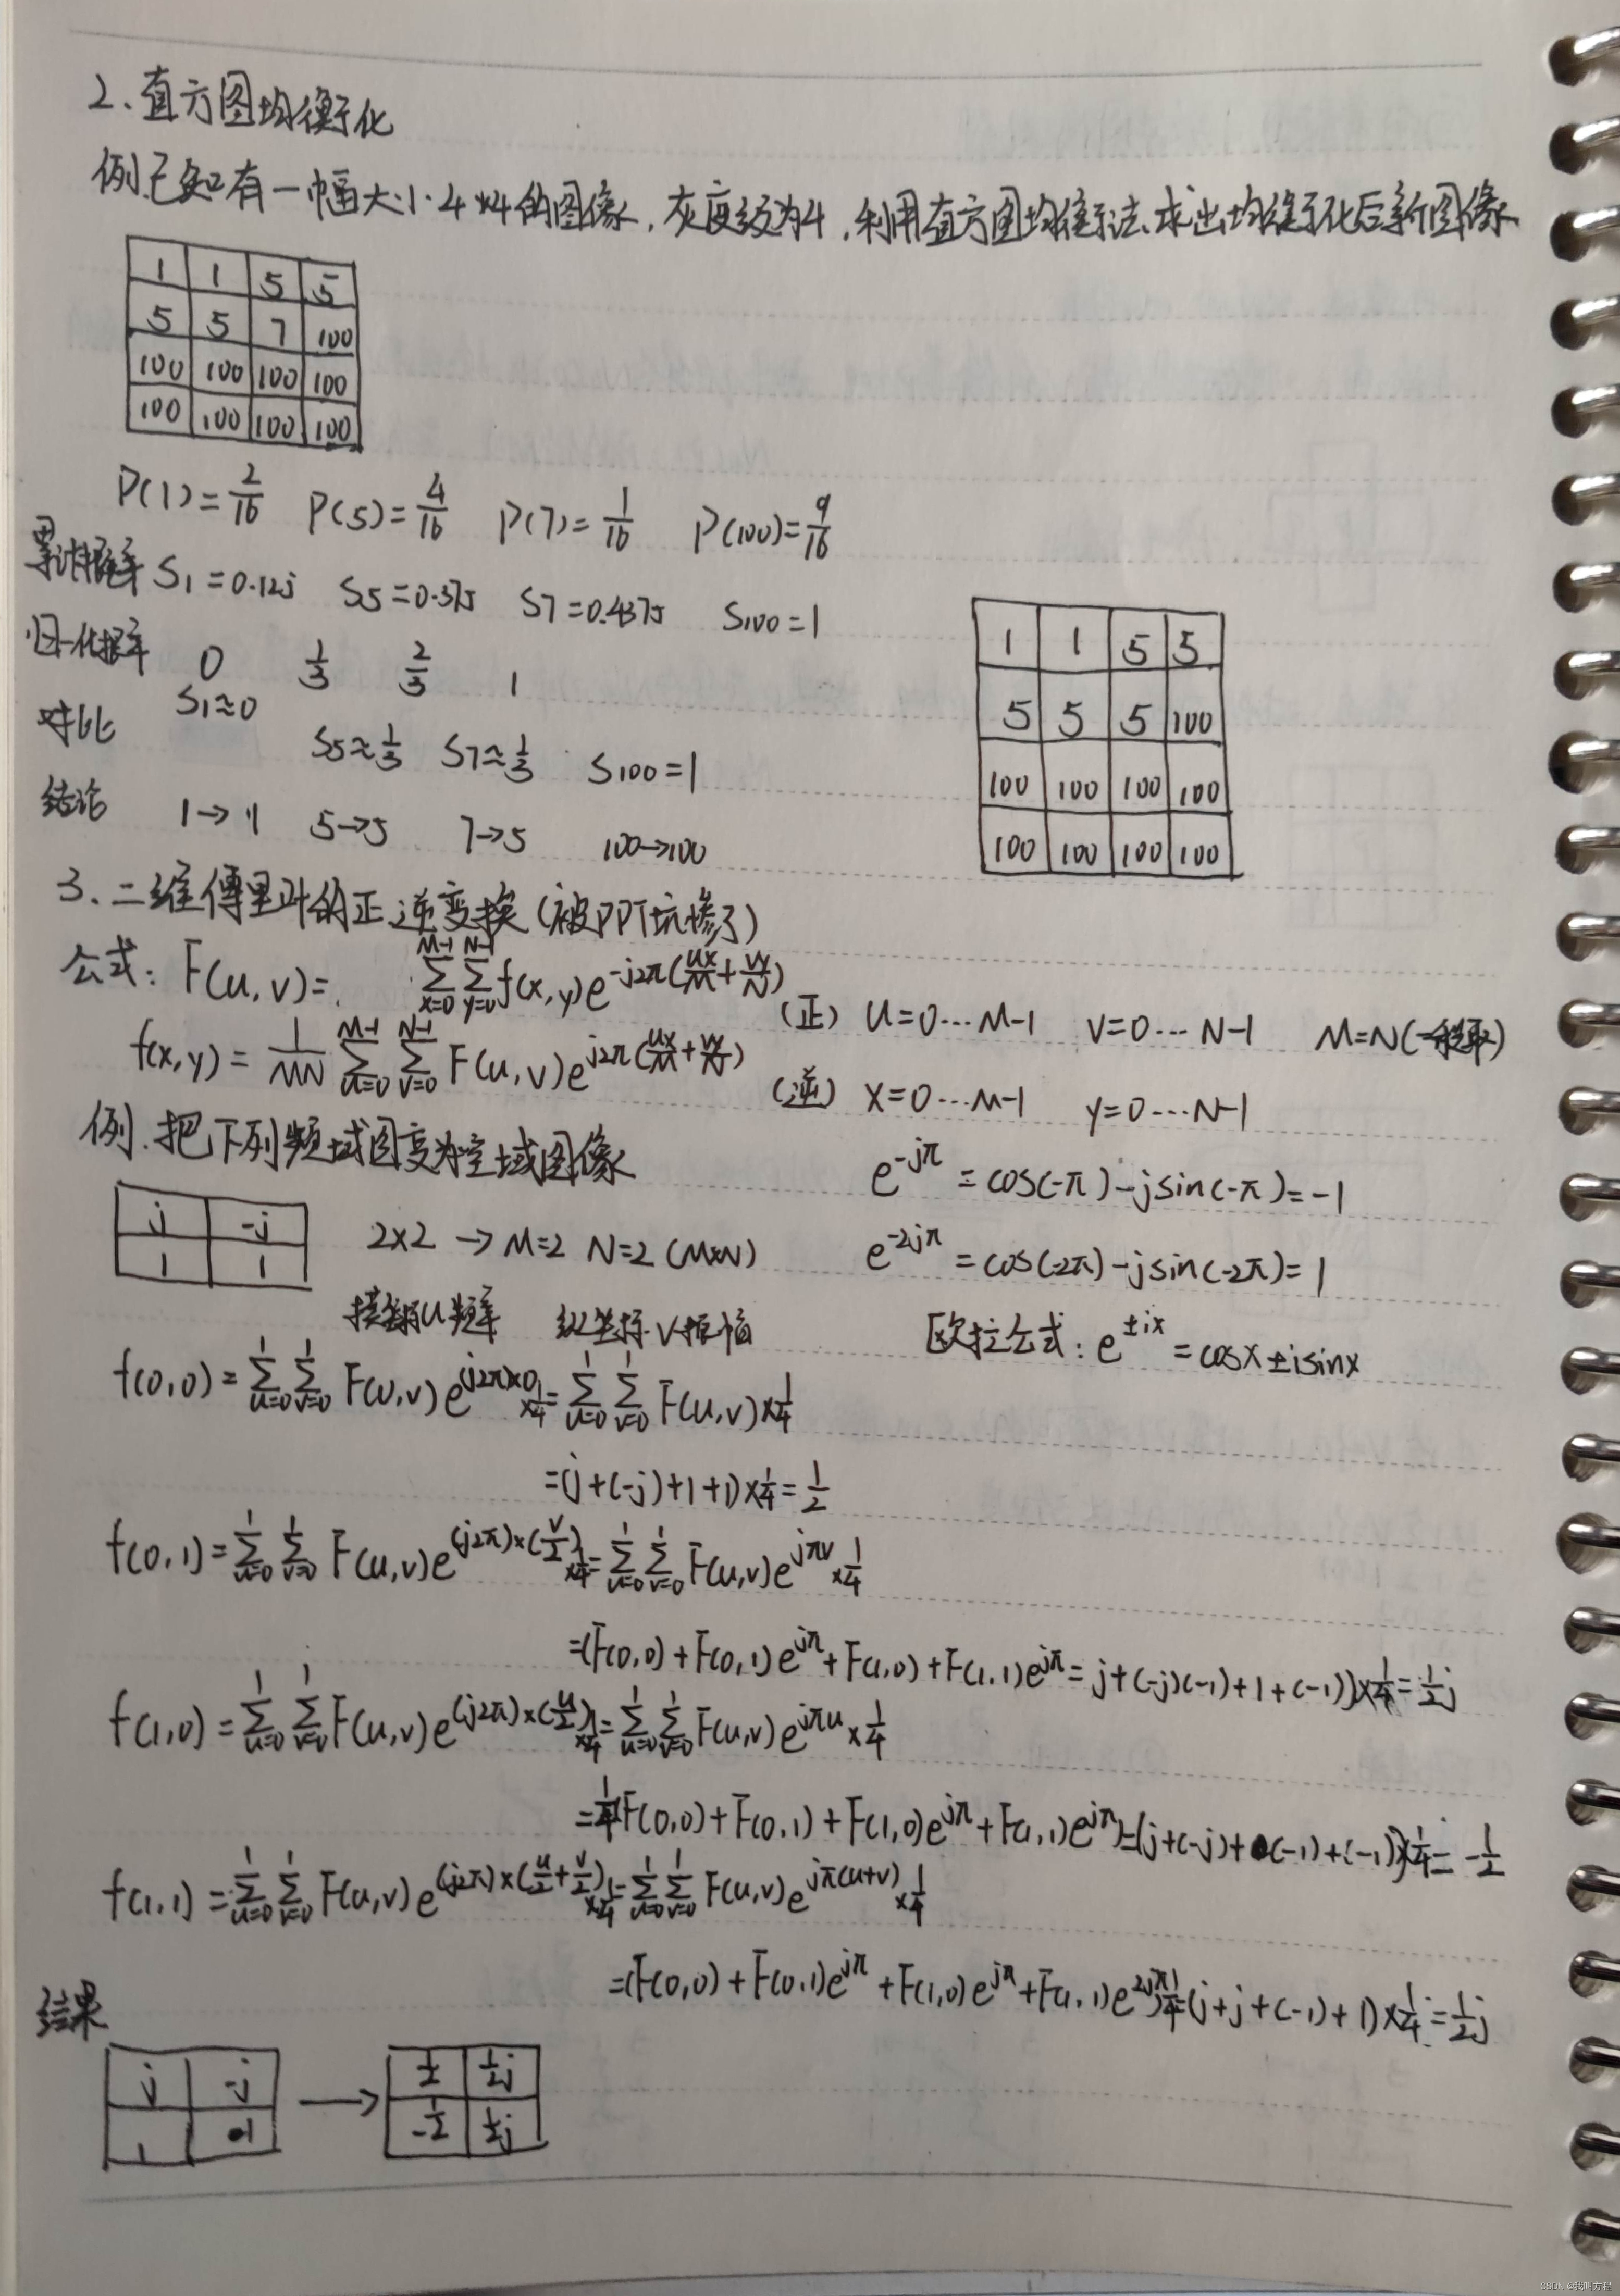 2、直方图均衡化
例.已知有一幅大小4×4的图像,灰度级为4,利用直方图均衡法,求出均衡化后新图像
1 1 5 5
5 5 7 100
100 100 100 100
100 100 100 100
P(1)=2/16 P(5)=4/16 P(7)=1/16 P(100)=9/16
累计概率 S1=0.125 S5=0.375 S7=0.4375 S100=1
归一化概率 0 1/3 2/3 1
对比 S1≈0 S5≈1/3 S7≈1/3 S100=1
结论 1→1 5→5 7→5 100→100
1 1 5 5
5 5 5 100
100 100 100 100
100 100 100 100
3、二维傅里叶的正逆变换(被PPT坑惨了)
公式: F(u,v)= ∑_{x=0}^{M-1} ∑_{y=0}^{N-1} f(x,y)e^{-j2π(ux/M+vy/N)} (正) u=0…M-1 v=0…N-1 M=N(一般取)
f(x,y)=1/MN ∑_{u=0}^{M-1} ∑_{v=0}^{N-1} F(u,v)e^{j2π(ux/M+vy/N)} (逆) x=0…M-1 y=0…N-1
例.把下列频域图变为空域图像
j -j
1 1
2×2 → M=2 N=2 (M×N)
e^{-jπ}=cos(-π)-jsin(-π)=-1
e^{-2jπ}=cos(-2π)-jsin(-2π)=1
纵坐标V振幅
欧拉公式: e^{±ix}=cosx±isinx
f(0,0)=∑_{u=0}^{1} ∑_{v=0}^{1} F(u,v)e^{(j2π)×0}×1/4=∑_{u=0}^{1} ∑_{v=0}^{1} F(u,v)×1/4
=(j+(-j)+1+1)×1/4=1/2
f(0,1)=∑_{u=0}^{1} ∑_{v=0}^{1} F(u,v)e^{(j2π)×(v/2)}×1/4=∑_{u=0}^{1} ∑_{v=0}^{1} F(u,v)e^{jπv}×1/4
=(F(0,0)+F(0,1)e^{jπ}+F(1,0)+F(1,1)e^{jπ}=j+(-j)(-1)+1+(-1))×1/4=1/2j
f(1,0)=∑_{u=0}^{1} ∑_{v=0}^{1} F(u,v)e^{(j2π)×(u/2)}×1/4=∑_{u=0}^{1} ∑_{v=0}^{1} F(u,v)e^{jπu}×1/4
=1/4(F(0,0)+F(0,1)+F(1,0)e^{jπ}+F(1,1)e^{jπ})=(j+(-j)+(-1)+(-1))×1/4=-1/2
f(1,1)=∑_{u=0}^{1} ∑_{v=0}^{1} F(u,v)e^{(j2π)×(u/2+v/2)}×1/4=∑_{u=0}^{1} ∑_{v=0}^{1} F(u,v)e^{jπ(u+v)}×1/4
=(F(0,0)+F(0,1)e^{jπ}+F(1,0)e^{jπ}+F(1,1)e^{2jπ})1/4=(j+j+(-1)+1)×1/4=1/2j
结果
j -j
1 1
→
1/2 1/2j
-1/2 1/2j
CSDN @我叫方程